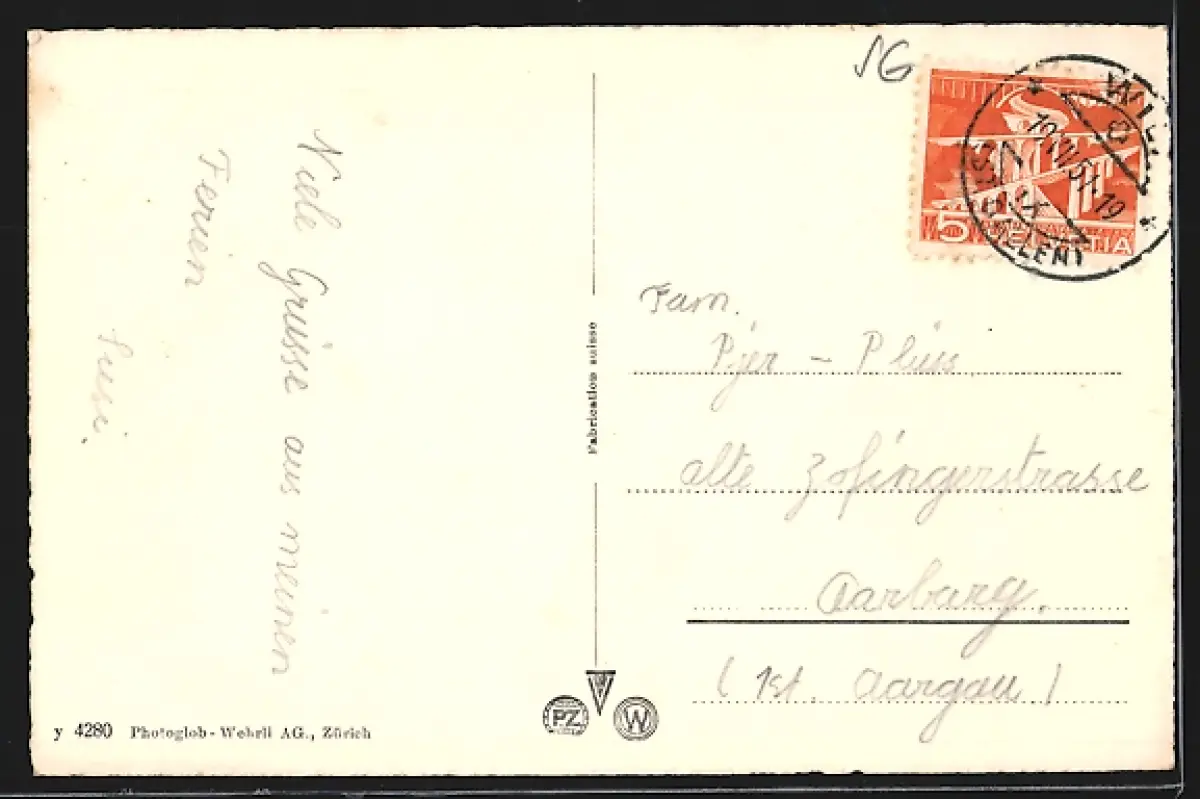 SG
5 HELVETIA
WIL
(ST. GALLEN)
Viele Grüsse aus meinen
Ferien
Susi.
Fabrication suisse
Fam.
Plüss
alte Zofingerstrasse
Aarburg.
(Kt. Aargau)
PZ W
y 4280 Photoglob-Wehrli AG., Zürich